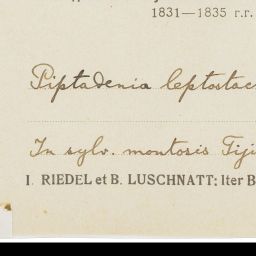 1831—1835 r.r.
Piptadenia leptostac
In sylv. montosis Tiji
I. RIEDEL et B. LUSCHNATT: Iter B